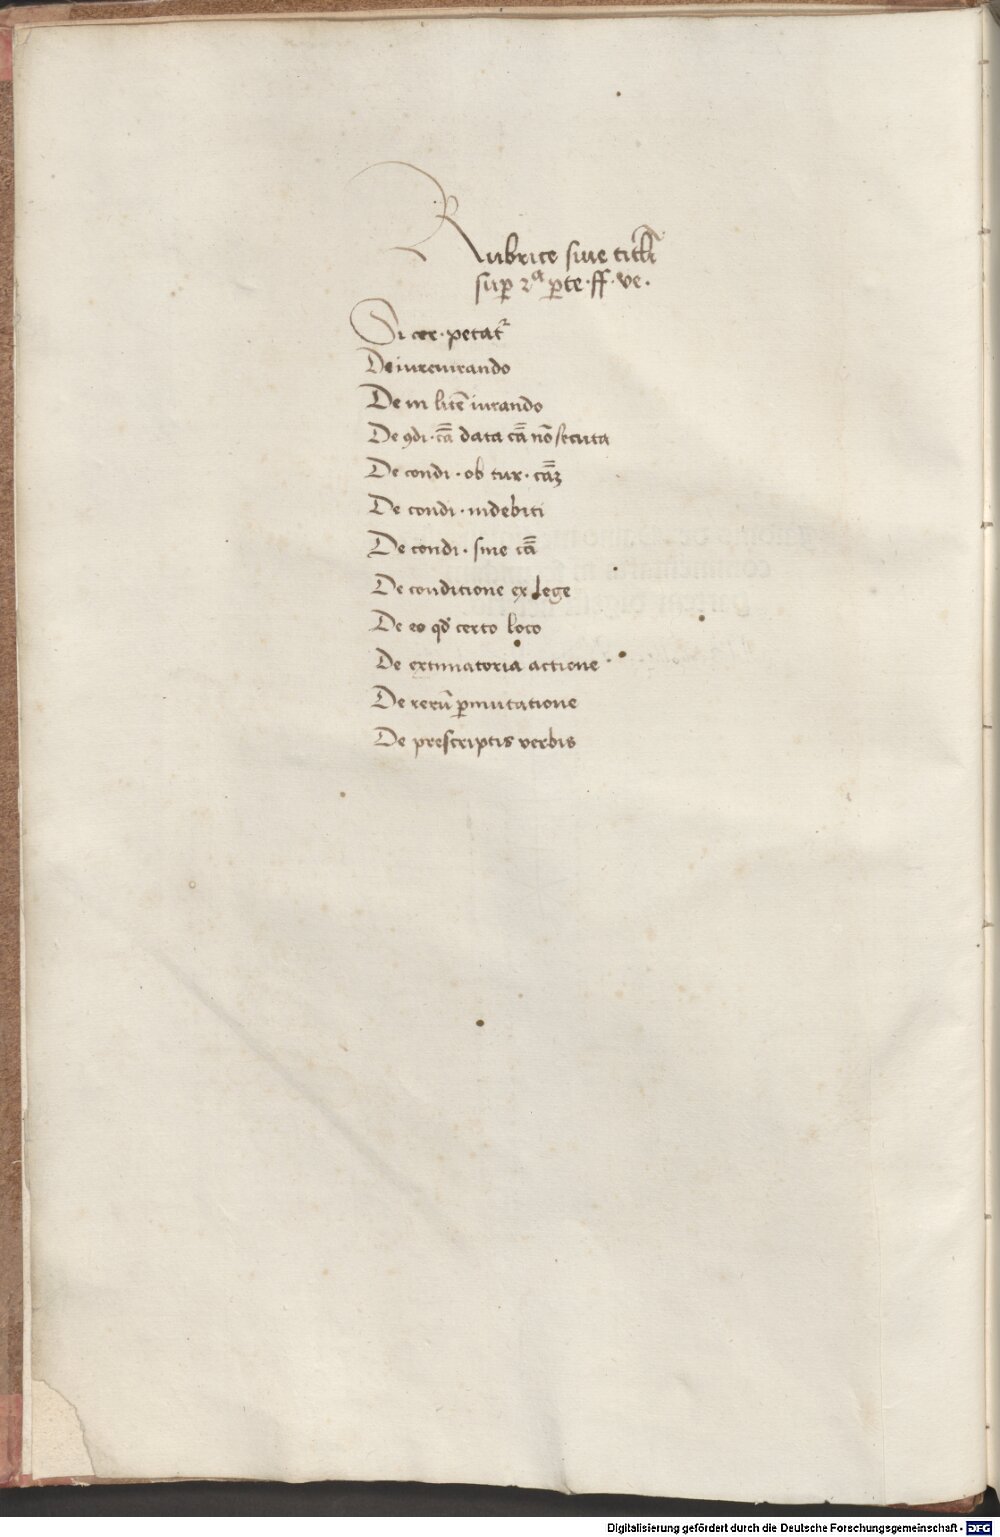 Rubrice siue titĺi
sup̲ 2ᵃ p̲te · ff · ve ·
Si cer · petat᷑
De iureiurando
De in litē iurando
De ꝯdi · cā data cā nō secuta
De condi · ob tur · cāꝫ
De condi · indebiti
De condi · sine cā
De conditione ex lege
De eo qđ certo loco
De extimatoria actione ·
De rerū p̲mutatione
De prescriptis verbis
Digitalisierung gefördert durch die Deutsche Forschungsgemeinschaft - DFG